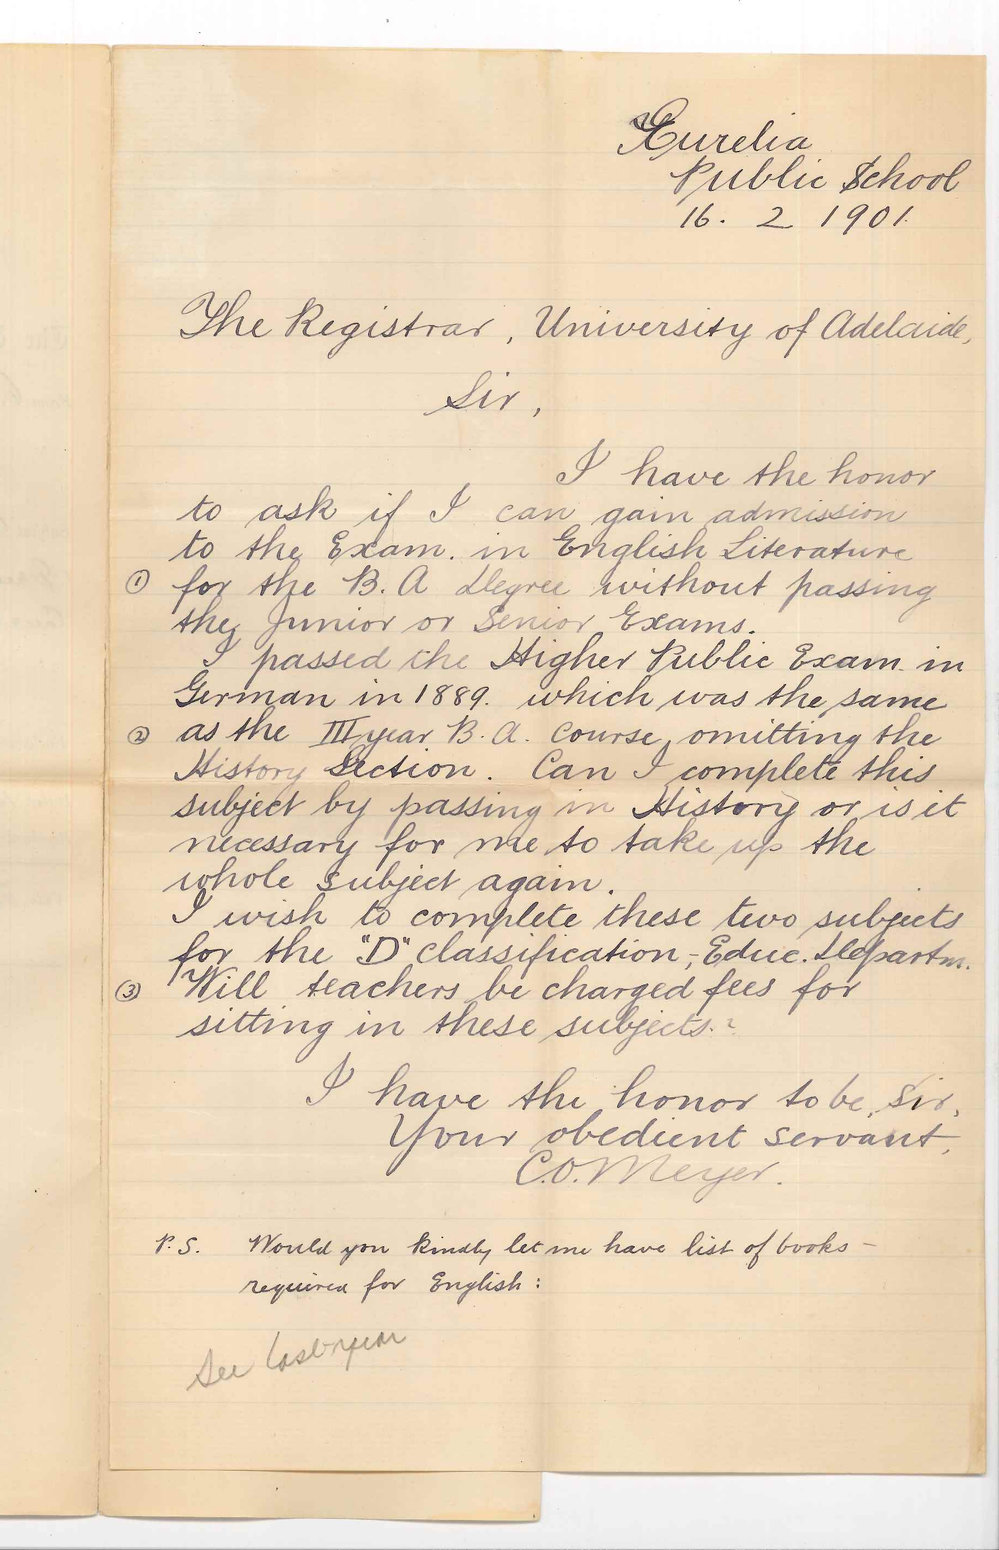 Eurelia
Public School
16. 2 1901.
The Registrar, University of Adelaide,
Sir,
I have the honor
to ask if I can gain admission
to the Exam. in English Literature
① for the B. A Degree without passing
the Junior or Senior Exams.
I passed the Higher Public Exam. in
German in 1889. which was the same
② as the III year B. A. course, omitting the
History Section. Can I complete this
subject by passing in History or is it
necessary for me to take up the
whole subject again.
I wish to complete these two subjects
for the "D" classification,- Educ. Departm.
③ Will teachers be charged fees for
sitting in these subjects.?
I have the honor to be, Sir,
Your obedient servant,
C.O. Meyer.
P.S. Would you kindly let me have list of books –
required for English:
See last year